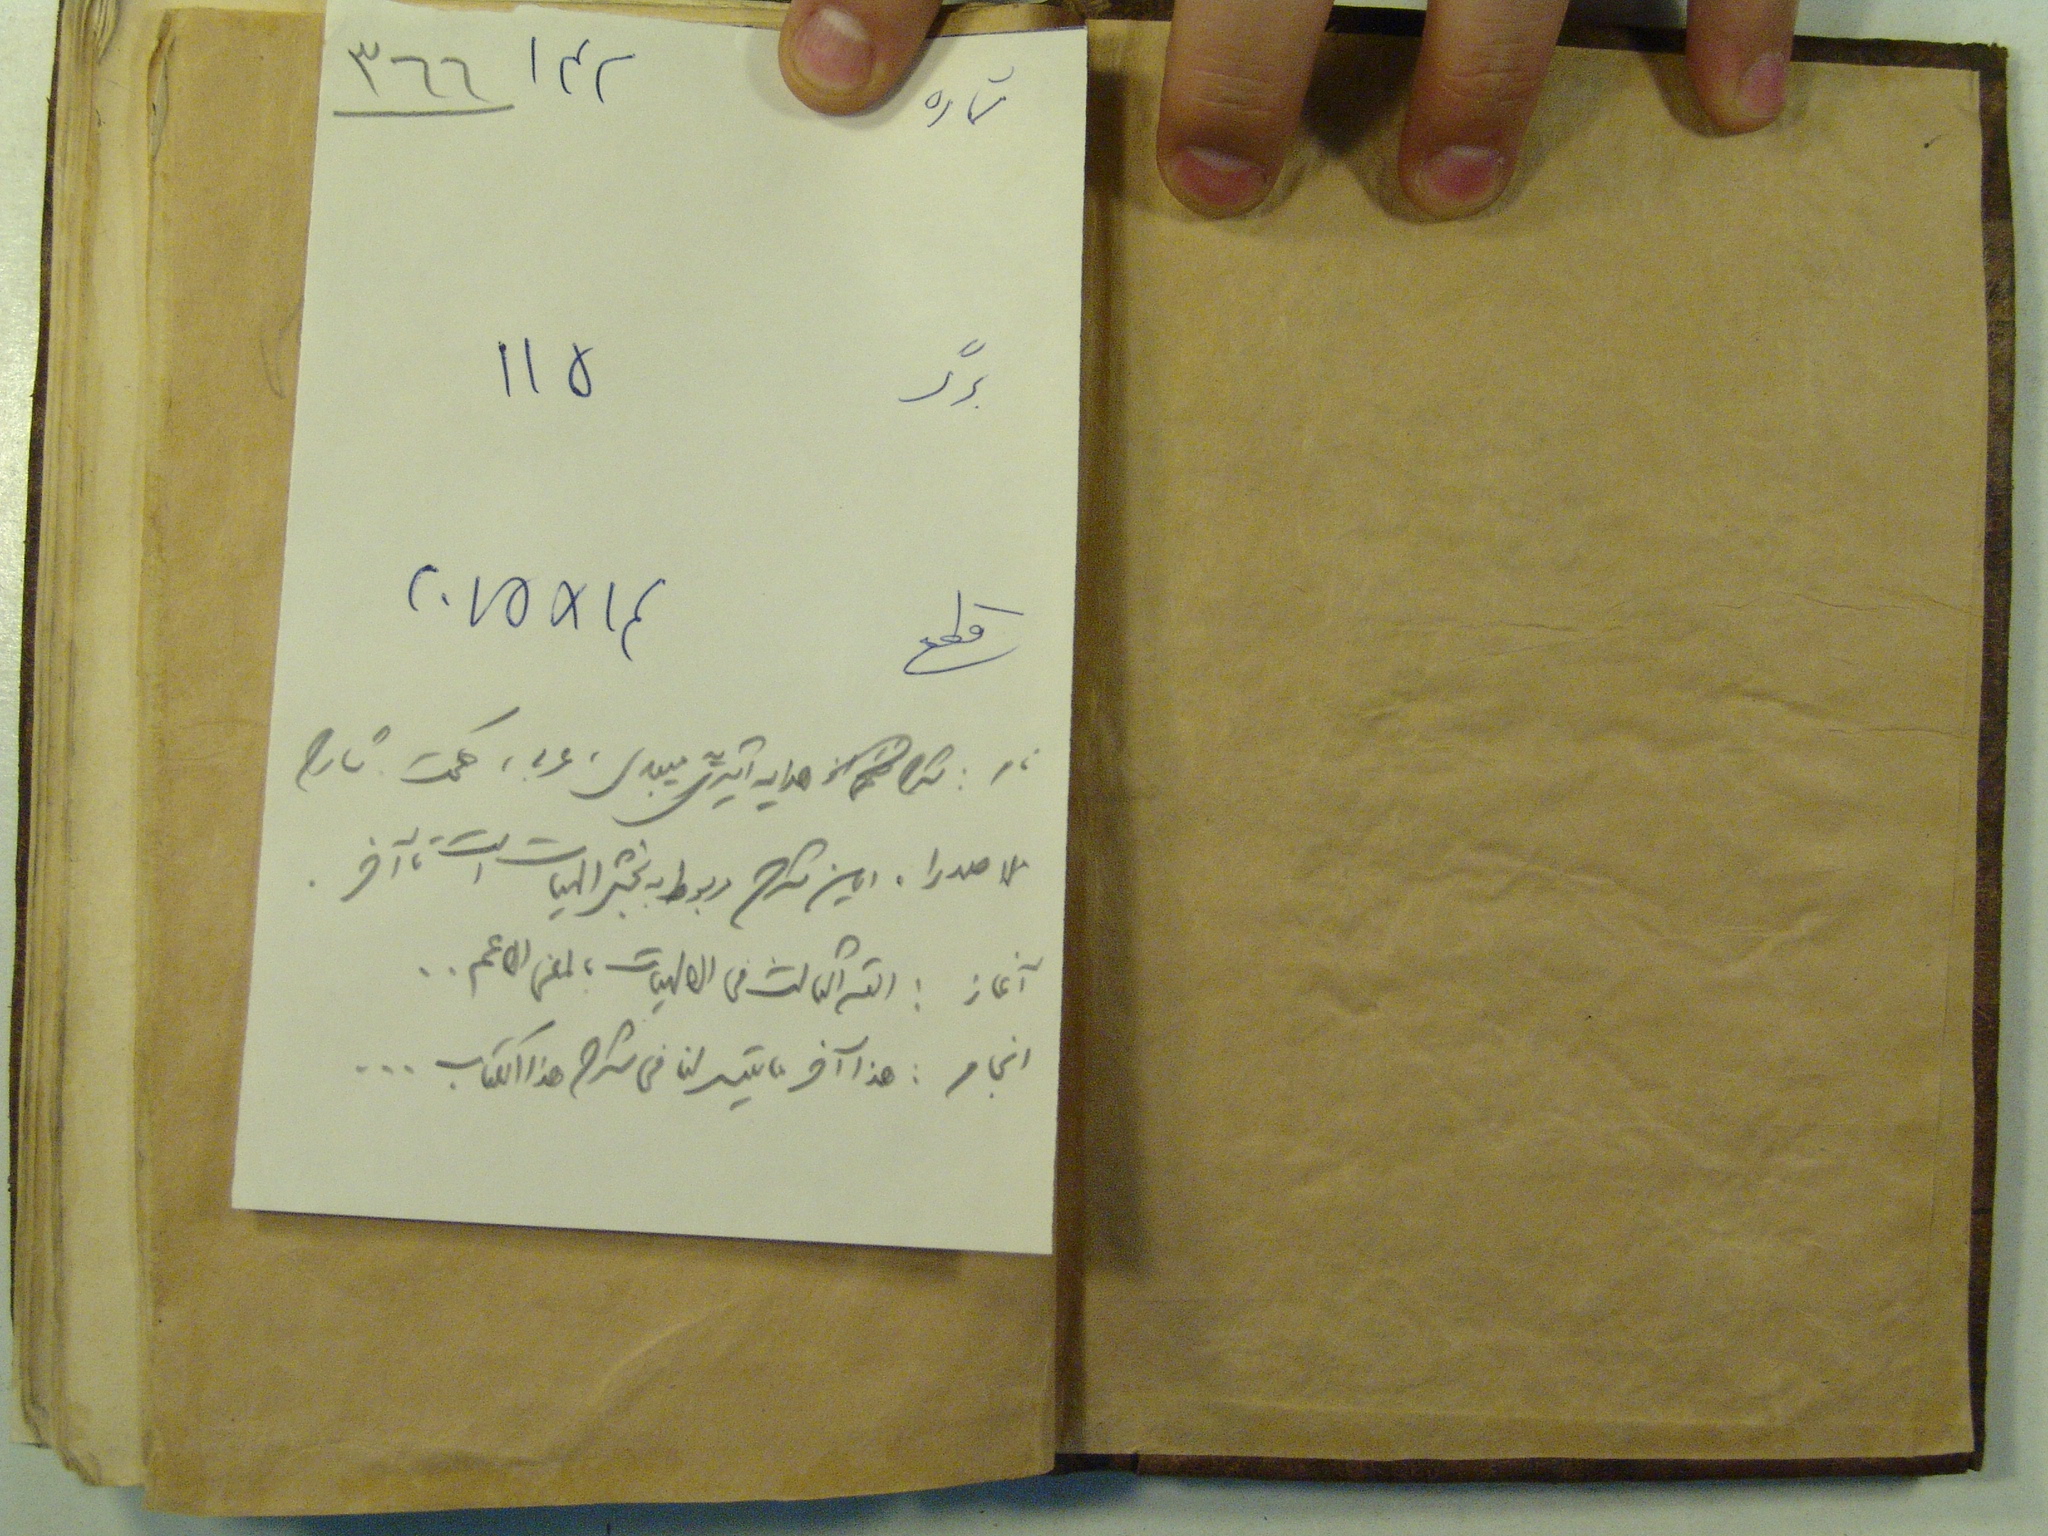 شماره ۱۴۲ ۳۶۶
برگ ۱۱۵
قطع ۲۰/۵×۱۴
نام : شرح هدایه اثیریه میبدی ، عربی ، حکمت شارح
ملا صدرا . این شرح مربوط به بخش الهیات است تا آخر .
آغاز : القسم الثالث فی الالهیات بالمعنی الاعم ..
انجام : هذا آخر ما تیسر لنا فی شرح هذا الکتاب ...